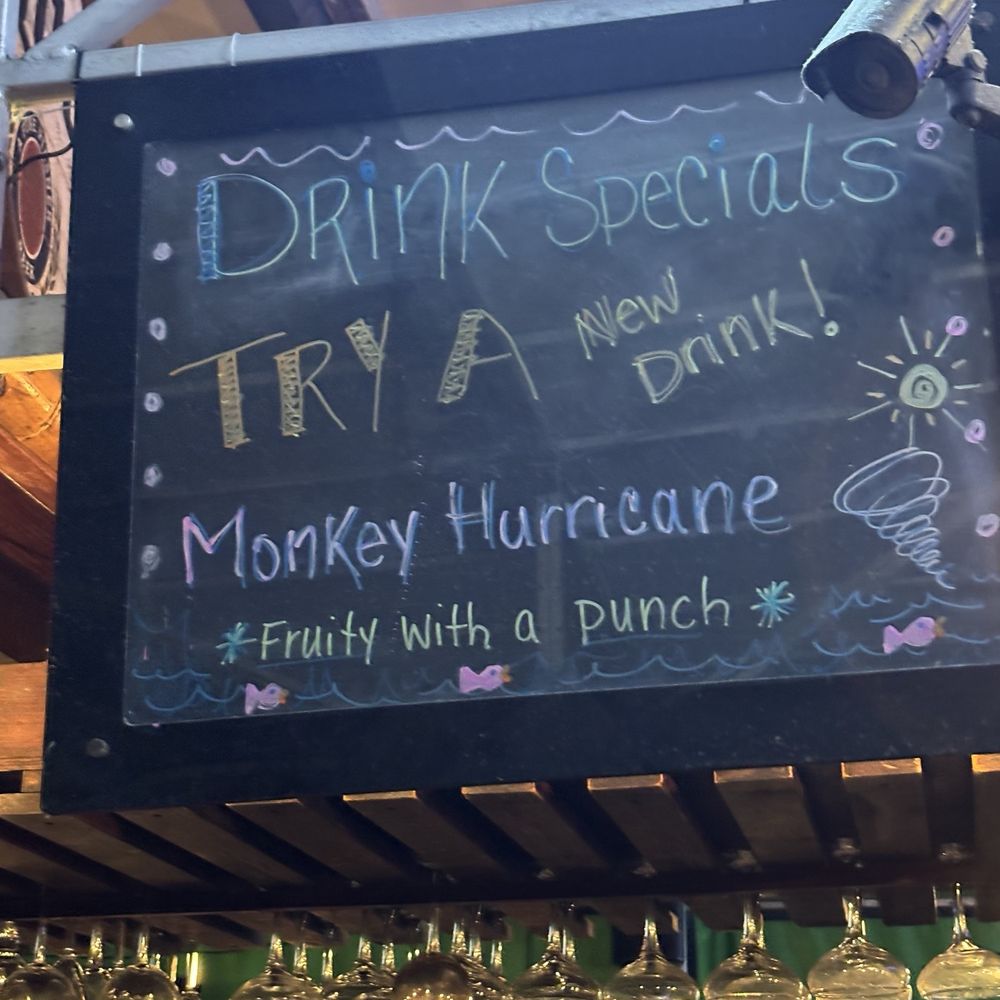 Drink Specials
TRY A New Drink!
Monkey Hurricane
*Fruity with a punch*